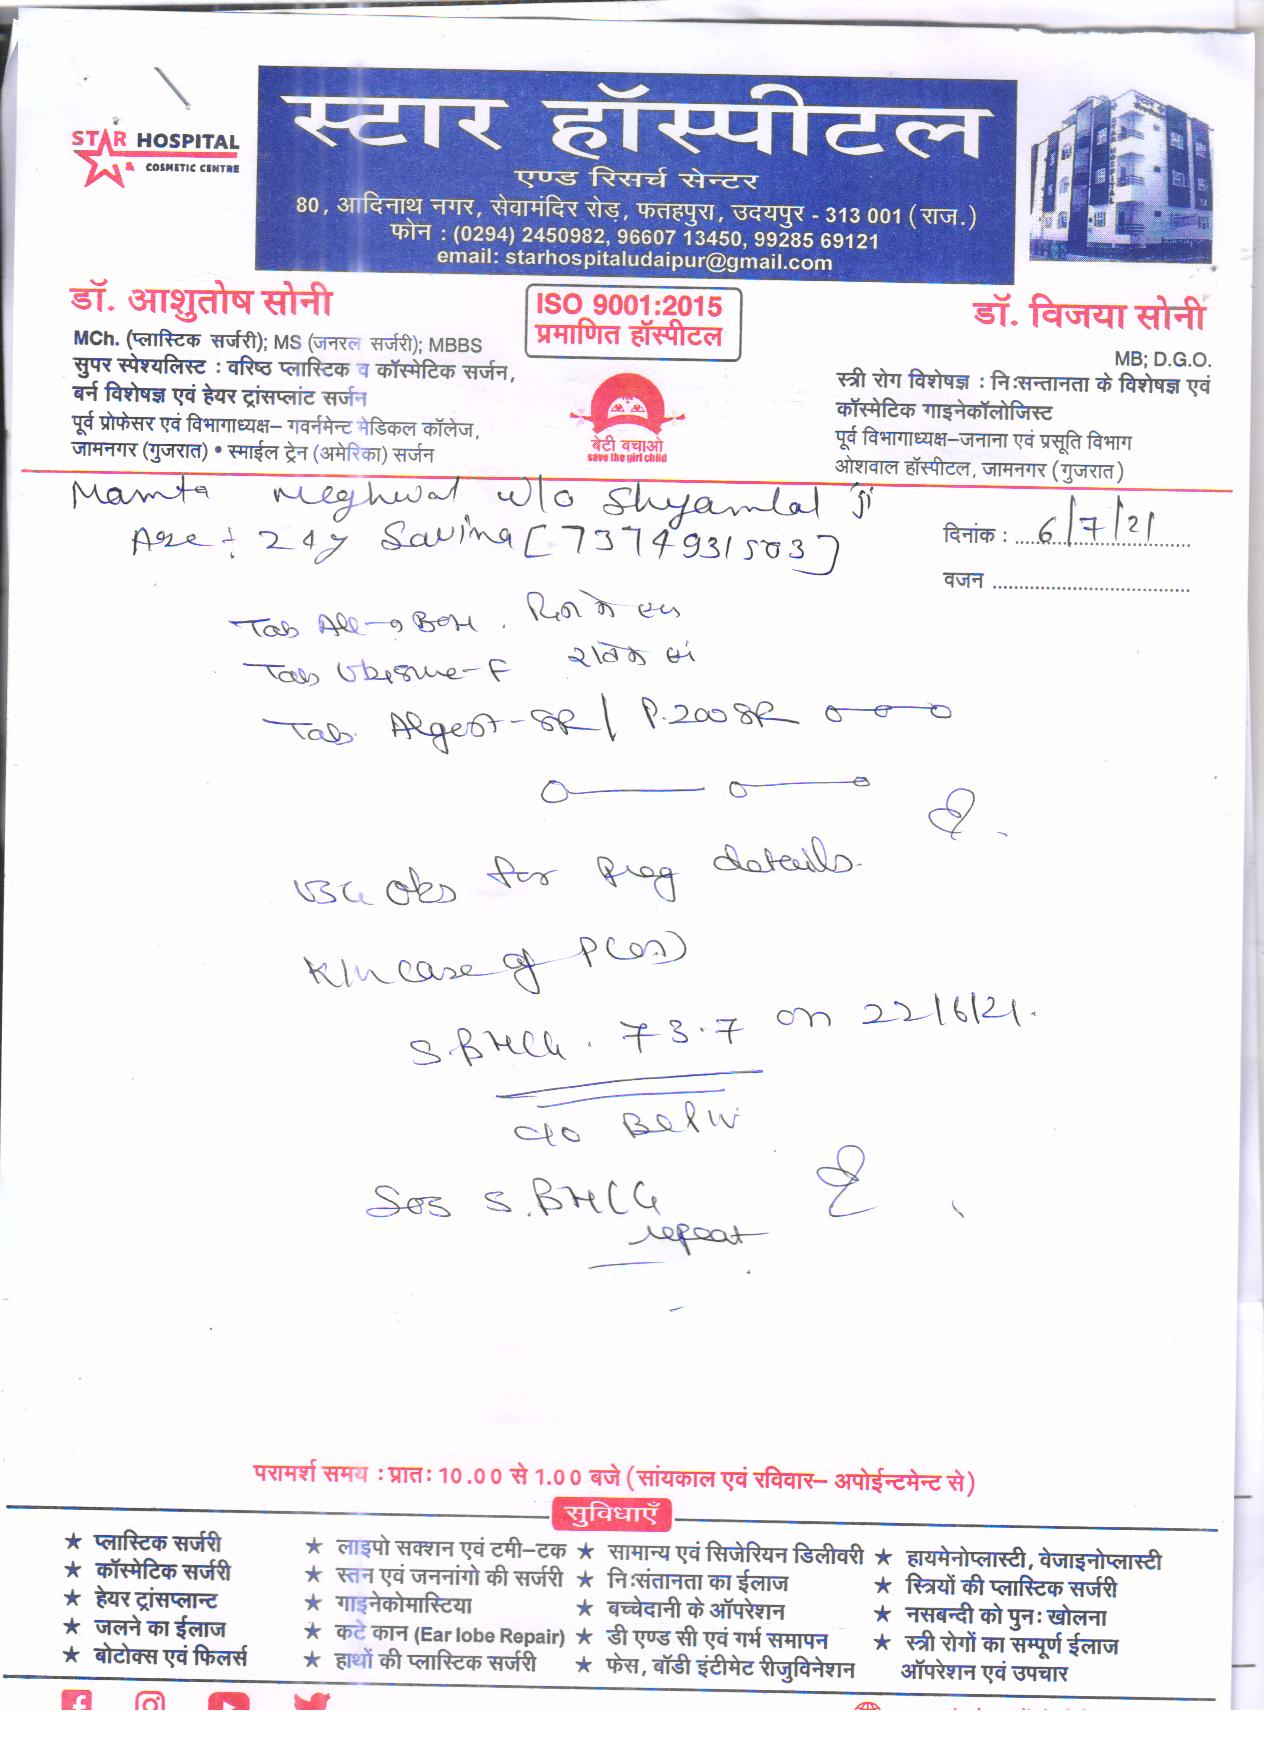 STAR HOSPITAL
& COSMETIC CENTRE
स्टार हॉस्पीटल
एण्ड रिसर्च सेन्टर
80, आदिनाथ नगर, सेवामंदिर रोड़, फतहपुरा, उदयपुर - 313 001 (राज.)
फोन : (0294) 2450982, 96607 13450, 99285 69121
email: starhospitaludaipur@gmail.com
डॉ. आशुतोष सोनी
MCh. (प्लास्टिक सर्जरी); MS (जनरल सर्जरी); MBBS
सुपर स्पेश्यलिस्ट : वरिष्ठ प्लास्टिक व कॉस्मेटिक सर्जन,
बर्न विशेषज्ञ एवं हेयर ट्रांसप्लांट सर्जन
पूर्व प्रोफेसर एवं विभागाध्यक्ष– गवर्नमेन्ट मेडिकल कॉलेज,
जामनगर (गुजरात) • स्माईल ट्रेन (अमेरिका) सर्जन
ISO 9001:2015
प्रमाणित हॉस्पीटल
बेटी बचाओ
save the girl child
डॉ. विजया सोनी
MB; D.G.O.
स्त्री रोग विशेषज्ञ : निःसन्तानता के विशेषज्ञ एवं
कॉस्मेटिक गाइनेकॉलोजिस्ट
पूर्व विभागाध्यक्ष–जनाना एवं प्रसूति विभाग
ओशवाल हॉस्पीटल, जामनगर (गुजरात)
Mamta Meghwal w/o Shyamlal जी
Age : 24y Savina [7374931503]
दिनांक : 6/7/21
वजन
Tab All-9 दिन में
Tab F
Tab. Algest-SR / P.200SR
Obs for Preg details.
K/n case of P(0+)
S.BHCG. 73.7 on 22/6/21.
c/o
Sos S.BHCG
repeat
परामर्श समय : प्रातः 10.00 से 1.00 बजे (सांयकाल एवं रविवार– अपोईन्टमेन्ट से)
सुविधाएँ
★ प्लास्टिक सर्जरी ★ लाइपो सक्शन एवं टमी–टक ★ सामान्य एवं सिजेरियन डिलीवरी ★ हायमेनोप्लास्टी, वेजाइनोप्लास्टी
★ कॉस्मेटिक सर्जरी ★ स्तन एवं जननांगो की सर्जरी ★ निःसंतानता का ईलाज ★ स्त्रियों की प्लास्टिक सर्जरी
★ हेयर ट्रांसप्लान्ट ★ गाइनेकोमास्टिया ★ बच्चेदानी के ऑपरेशन ★ नसबन्दी को पुनः खोलना
★ जलने का ईलाज ★ कटे कान (Ear lobe Repair) ★ डी एण्ड सी एवं गर्भ समापन ★ स्त्री रोगों का सम्पूर्ण ईलाज
★ बोटोक्स एवं फिलर्स ★ हाथों की प्लास्टिक सर्जरी ★ फेस, बॉडी इंटीमेट रीजुविनेशन ऑपरेशन एवं उपचार